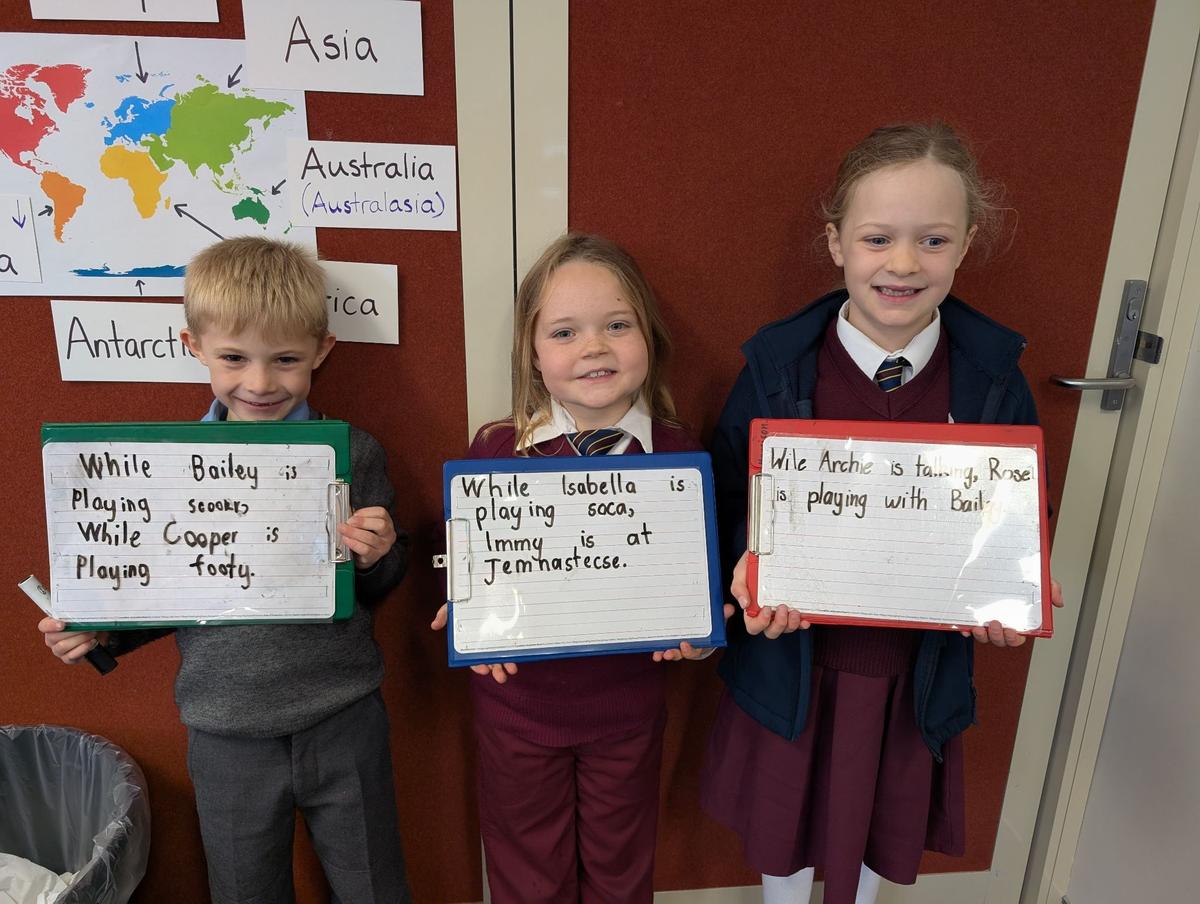 Asia
Australia
(Australasia)
a
rica
Antarcti
While Bailey is
Playing scookr,
While Cooper is
Playing footy.
While Isabella is
playing soca,
Immy is at
Jemnastecse.
Wile Archie is talking, Rose
is playing with Baile